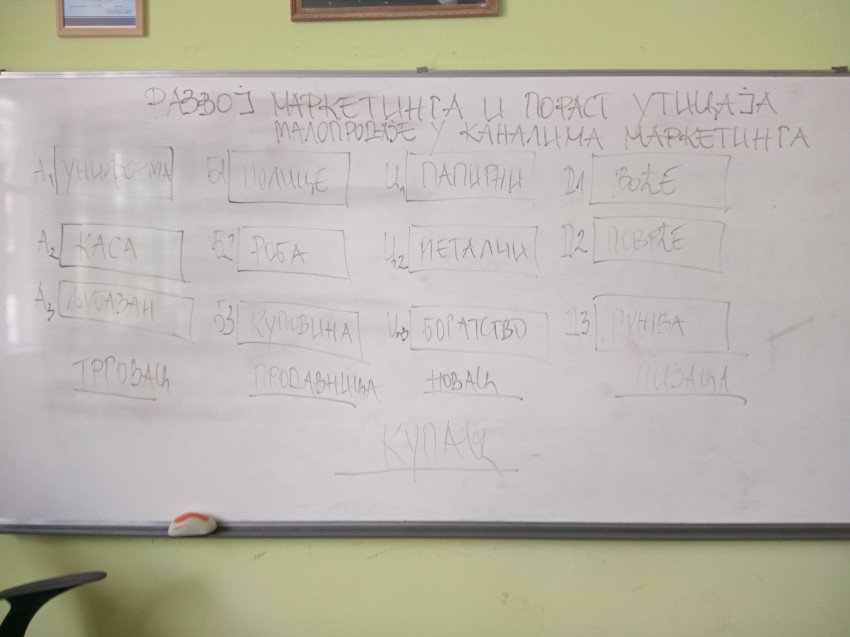 РАЗВОЈ МАРКЕТИНГА И ПОРАСТ УТИЦАЈА
МАЛОПРОДАЈЕ У КАНАЛИМА МАРКЕТИНГА
А1 УНИФОРМА Б1 ПОЛИЦЕ Ц1 ПАПИРНИ Д1 ВОЋЕ
А2 КАСА Б2 РОБА Ц2 МЕТАЛНИ Д2 ПОВРЋЕ
А3 ЉУБАЗАН Б3 КУПОВИНА Ц3 БОГАТСТВО Д3
ТРГОВАЦ ПРОДАВНИЦА НОВАЦ ПИЈАЦА
КУПАЦ